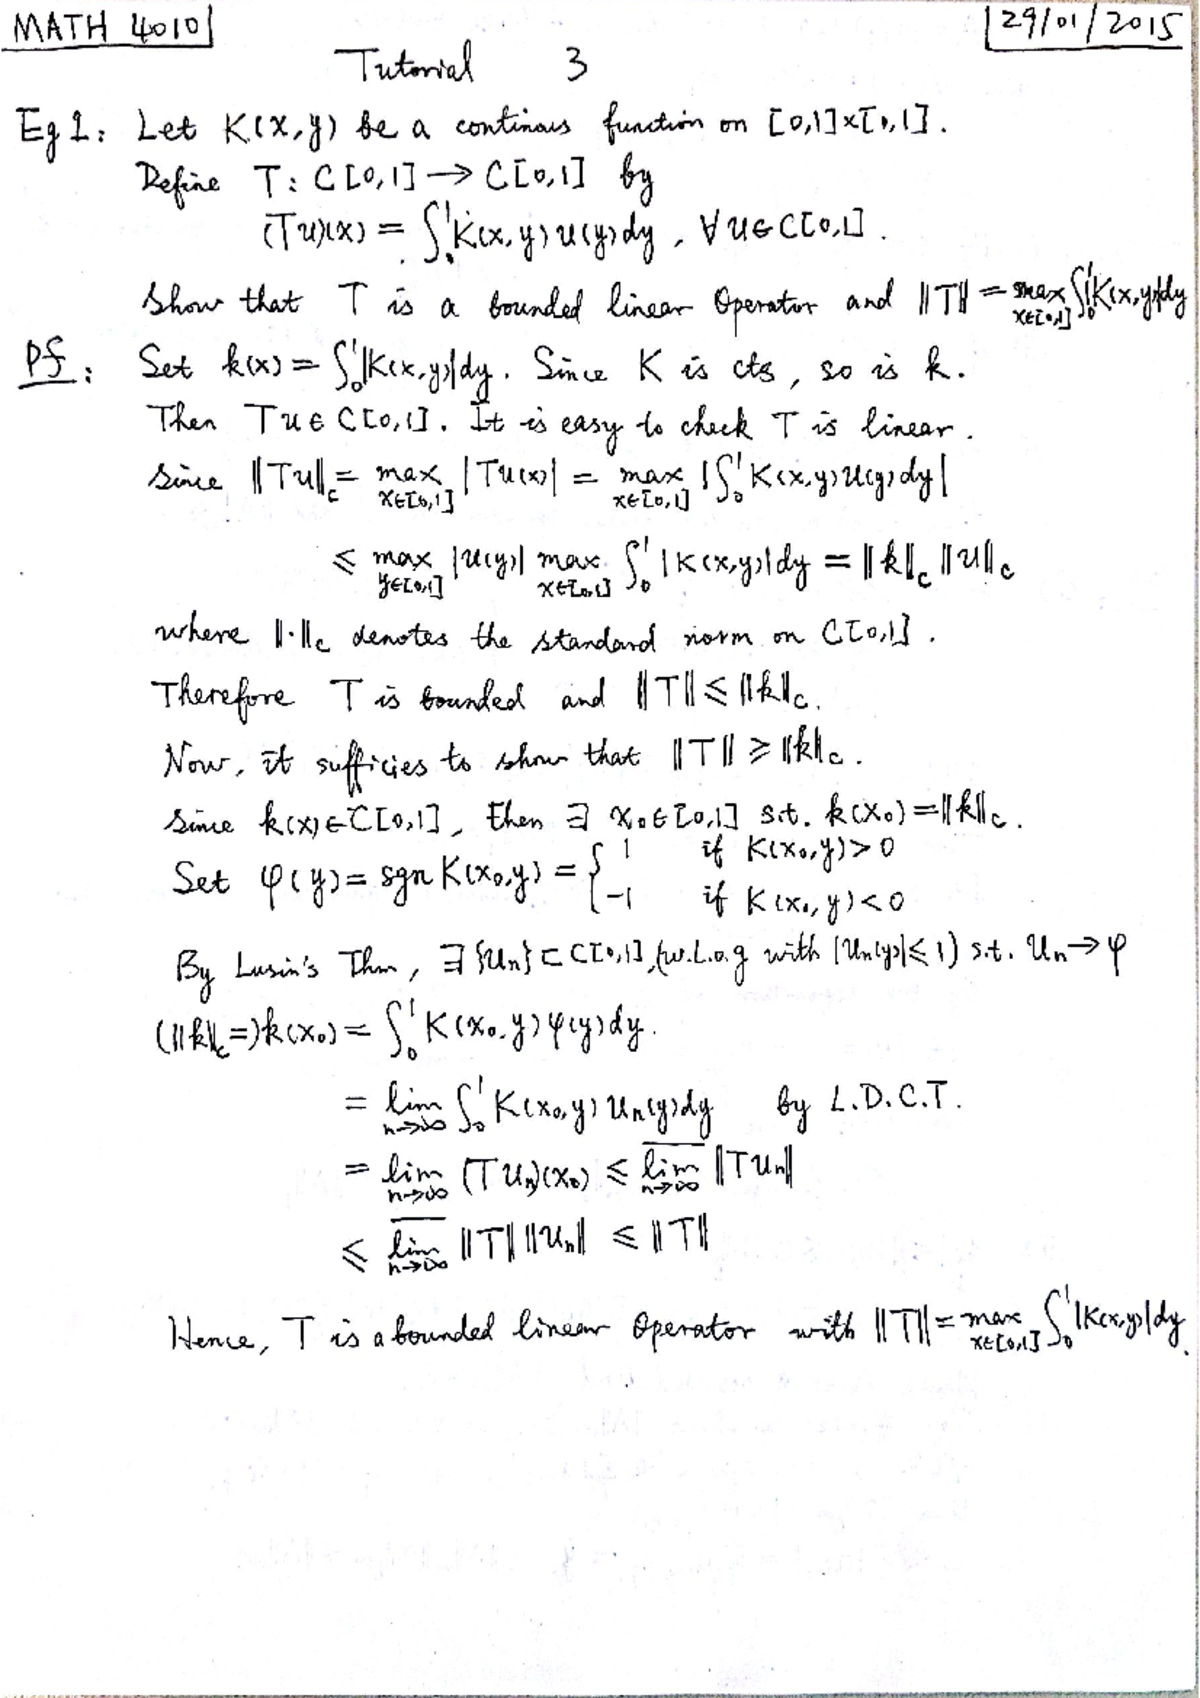 MATH 4010
29/01/2015
Tutorial 3
Eg 1: Let K(x,y) be a continous function on [0,1]×[0,1].
Define T: C[0,1] → C[0,1] by
(Tu)(x) = ∫₀¹ K(x,y) u(y) dy, ∀ u ∈ C[0,1].
Show that T is a bounded linear operator and ‖T‖ = max_{x∈[0,1]} ∫₀¹ |K(x,y)| dy
Pf: Set k(x) = ∫₀¹ |K(x,y)| dy. Since K is cts, so is k.
Then Tu ∈ C[0,1]. It is easy to check T is linear.
Since ‖Tu‖_c = max_{x∈[0,1]} |Tu(x)| = max_{x∈[0,1]} |∫₀¹ K(x,y) u(y) dy|
≤ max_{y∈[0,1]} |u(y)| max_{x∈[0,1]} ∫₀¹ |K(x,y)| dy = ‖k‖_c ‖u‖_c
where ‖·‖_c denotes the standard norm on C[0,1].
Therefore T is bounded and ‖T‖ ≤ ‖k‖_c.
Now, it sufficies to show that ‖T‖ ≥ ‖k‖_c.
Since k(x) ∈ C[0,1], then ∃ x₀ ∈ [0,1] s.t. k(x₀) = ‖k‖_c.
Set φ(y) = sgn K(x₀,y) = { 1 if K(x₀,y) > 0
-1 if K(x₀,y) < 0
By Lusin's Thm, ∃ {Un} ⊂ C[0,1], (w.L.o.g with |Un(y)| ≤ 1) s.t. Un → φ
(‖k‖_c =) k(x₀) = ∫₀¹ K(x₀,y) φ(y) dy.
= lim_{n→∞} ∫₀¹ K(x₀,y) Un(y) dy by L.D.C.T.
= lim_{n→∞} (TUn)(x₀) ≤ \overline{lim}_{n→∞} ‖TUn‖
≤ \overline{lim}_{n→∞} ‖T‖ ‖Un‖ ≤ ‖T‖
Hence, T is a bounded linear operator with ‖T‖ = max_{x∈[0,1]} ∫₀¹ |K(x,y)| dy.